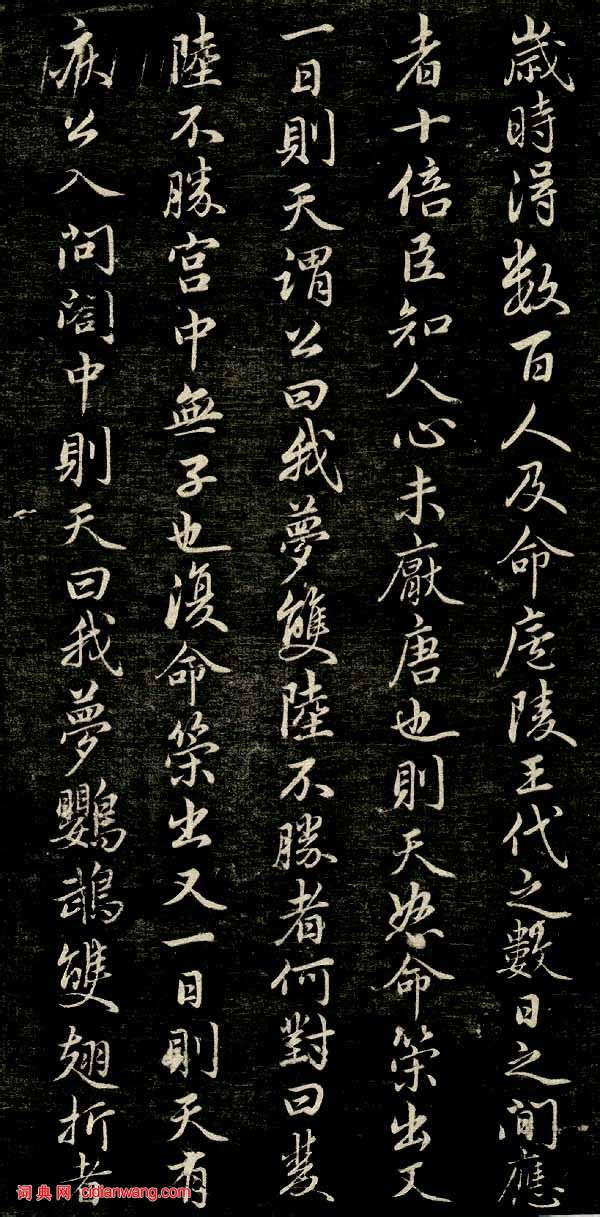 歲時得数百人及命廬陵王代之數日之間應
者十倍臣知人心未厭唐也則天怒命策出又
一日則天謂公曰我夢雙陸不勝者何對曰雙
陸不勝宫中無子也復命策出又一日則天有
疾公入問閤中則天曰我夢鸚鵡雙翅折者
词典网 cidianwang.com